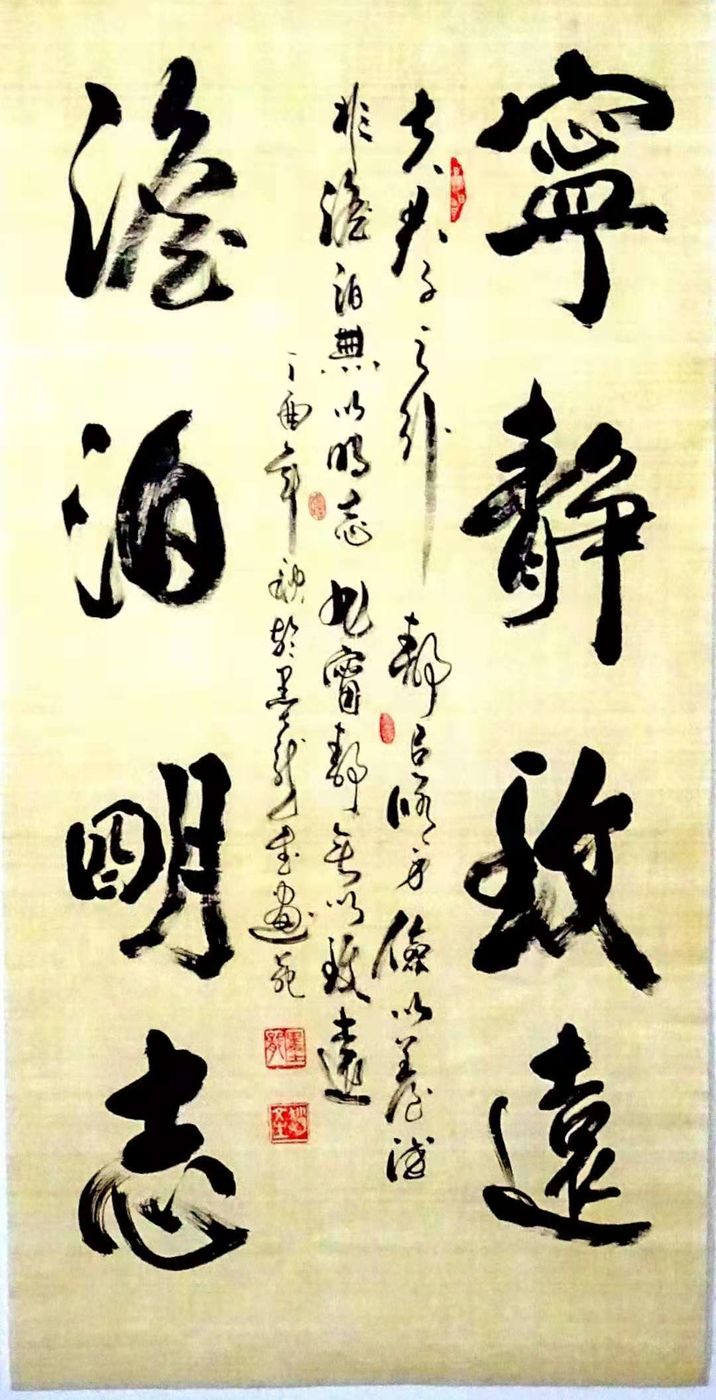 寧靜致遠
夫君子之行 靜以修身 儉以養德
非澹泊無以明志 非寧靜無以致遠
丁酉年秋於墨龍書画苑
澹泊明志